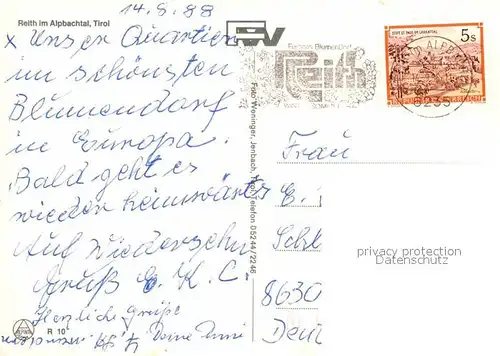 Reith im Alpbachtal, Tirol
14.9.88
x Unser Quartier
im schönsten
Blumendorf
in Europa.
Bald geht es
wieder heimwärts
Auf Wiedersehn
Gruß E. K. C.
Herzliche Grüße
Deine
R 10
Foto Weninger, Jenbach, Tirol, Telefon 05244/2246
Europas Blumendorf
Reith
STIFT ST. PAUL IM LAVANTTAL
5s
6235
Frau
E.
8630
privacy protection
Datenschutz